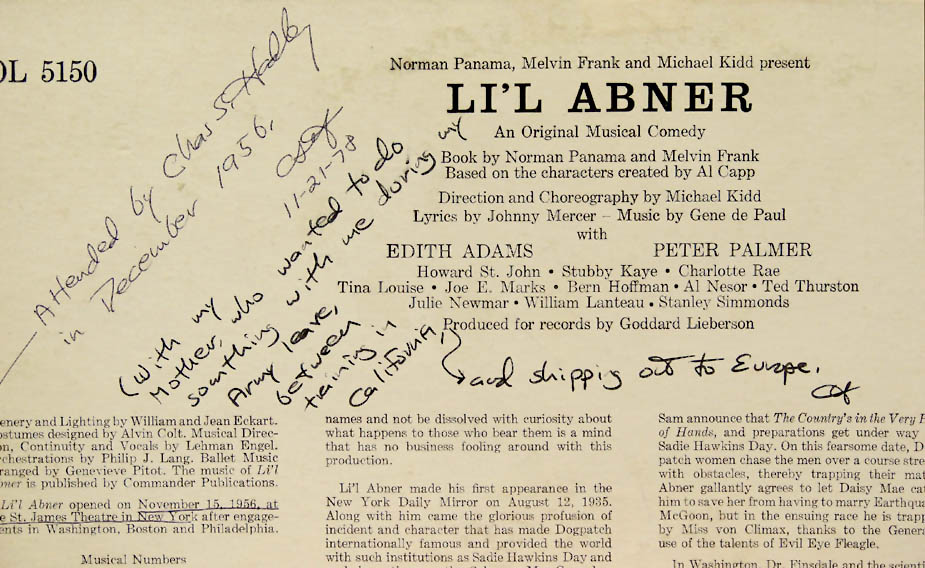 OL 5150
Norman Panama, Melvin Frank and Michael Kidd present
LI'L ABNER
An Original Musical Comedy
Book by Norman Panama and Melvin Frank
Based on the characters created by Al Capp
Direction and Choreography by Michael Kidd
Lyrics by Johnny Mercer – Music by Gene de Paul
with
EDITH ADAMS PETER PALMER
Howard St. John • Stubby Kaye • Charlotte Rae
Tina Louise • Joe E. Marks • Bern Hoffman • Al Nesor • Ted Thurston
Julie Newmar • William Lanteau • Stanley Simmonds
Produced for records by Goddard Lieberson
— Attended by Chas S. Hadley
in December 1956.
11-21-78
(with my
Mother, who wanted to do
something with me during my
Army leave,
between
training in
California,
and shipping out to Europe.
enery and Lighting by William and Jean Eckart.
ostumes designed by Alvin Colt. Musical Direc-
on, Continuity and Vocals by Lehman Engel.
chestrations by Philip J. Lang. Ballet Music
ranged by Genevieve Pitot. The music of Li'l
bner is published by Commander Publications.
Li'l Abner opened on November 15, 1956, at
e St. James Theatre in New York after engage-
ents in Washington, Boston and Philadelphia.
Musical Numbers
names and not be dissolved with curiosity about
what happens to those who bear them is a mind
that has no business fooling around with this
production.
Li'l Abner made his first appearance in the
New York Daily Mirror on August 12, 1935.
Along with him came the glorious profusion of
incident and character that has made Dogpatch
internationally famous and provided the world
with such institutions as Sadie Hawkins Day and
Sam announce that The Country's in the Very
of Hands, and preparations get under way
Sadie Hawkins Day. On this fearsome date, D
patch women chase the men over a course stre
with obstacles, thereby trapping their mat
Abner gallantly agrees to let Daisy Mae ca
him to save her from having to marry Earthqua
McGoon, but in the ensuing race he is trapp
by Miss von Climax, thanks to the Genera
use of the talents of Evil Eye Fleagle.
In Washington, Dr. Finsdale and the scienti